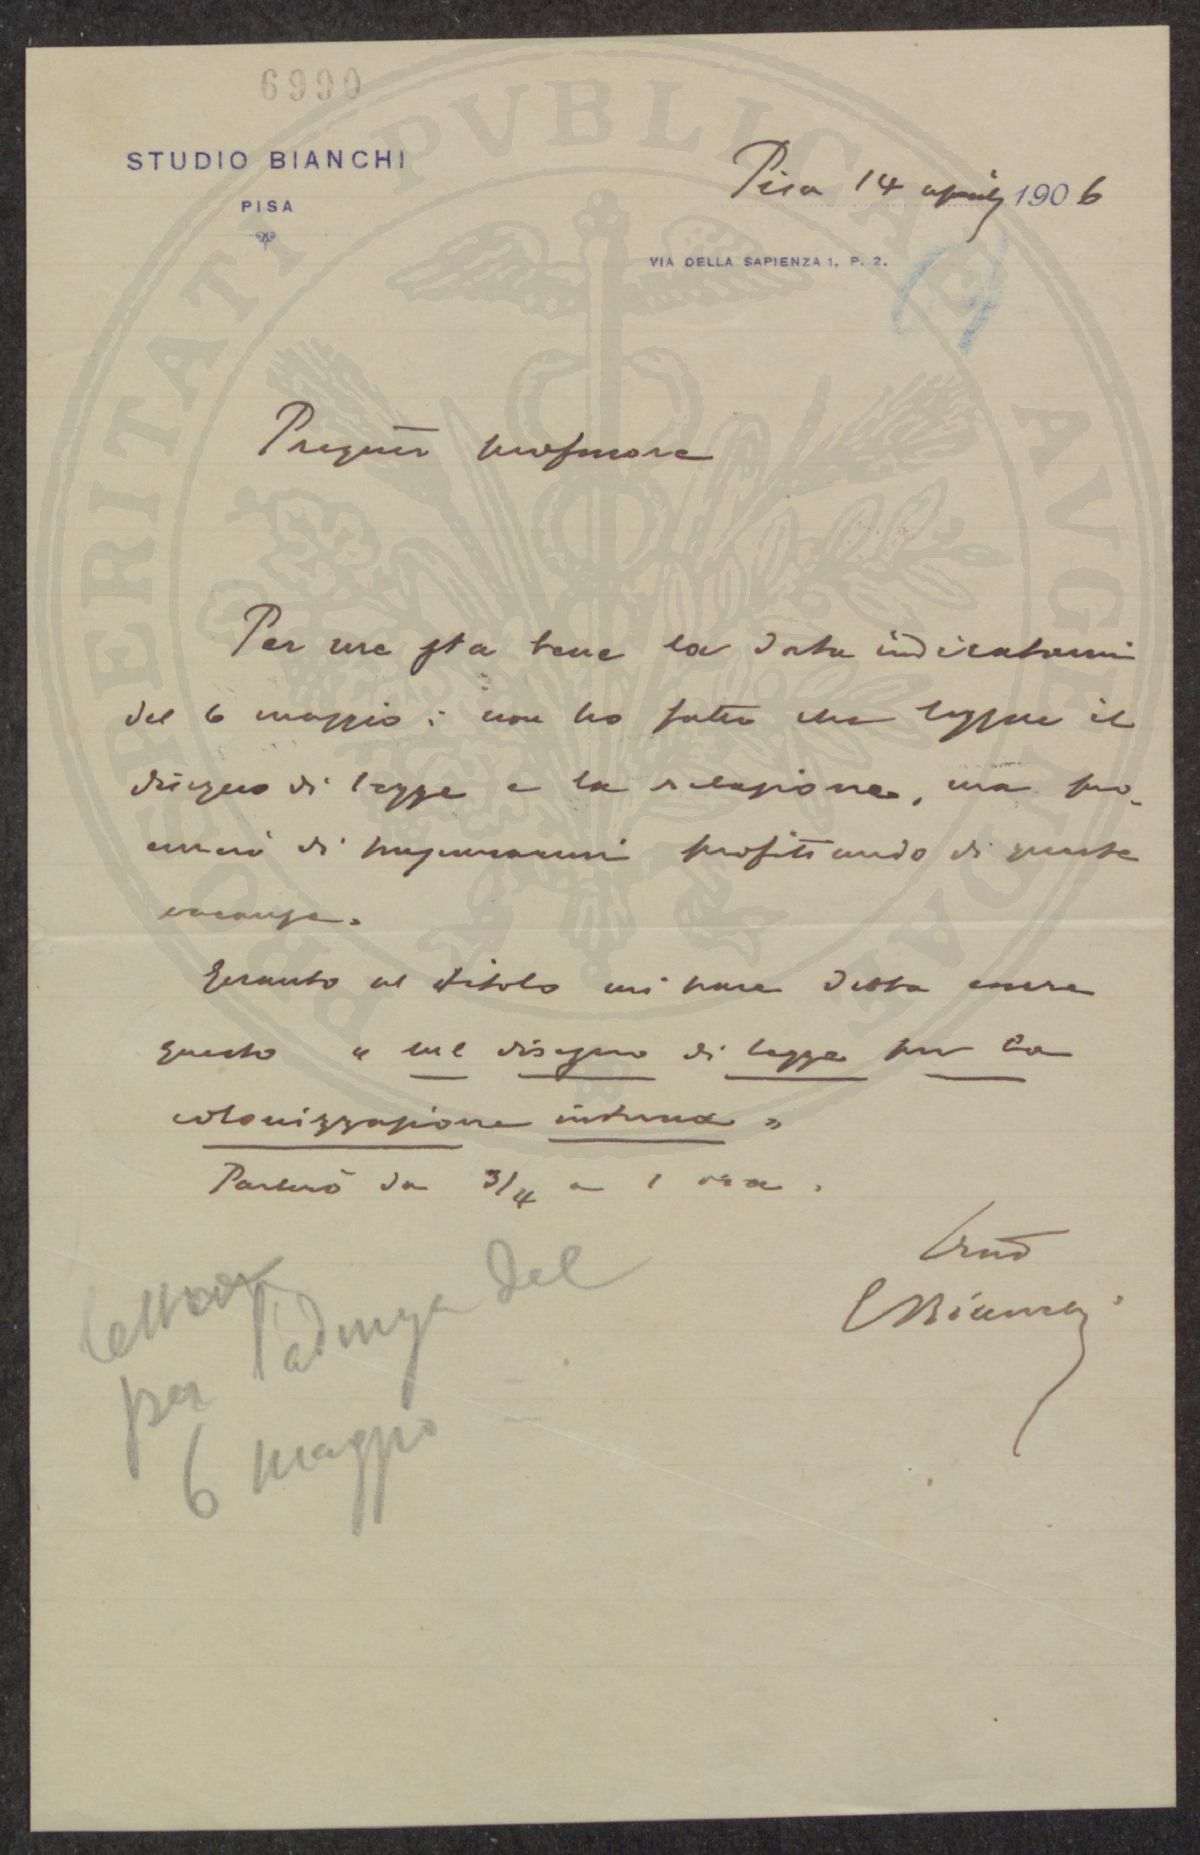 6990
STUDIO BIANCHI
PISA
Pisa 14 aprile 1906
VIA DELLA SAPIENZA 1. P. 2.
Pregmo professore
Per me sta bene la data indicatami
del 6 maggio; non ho fatto che leggere il
disegno di legge e la relazione, ma pro-
curerò di prepararmi profittando di queste
vacanze.
Quanto al titolo mi pare debba essere
questo "sul disegno di legge per la
colonizzazione interna"
Parlerò da 3/4 a 1 ora.
Bianchi
lettura
per l'adunza del
6 maggio
PROSPERITATI PVBLICAE AVGENDAE